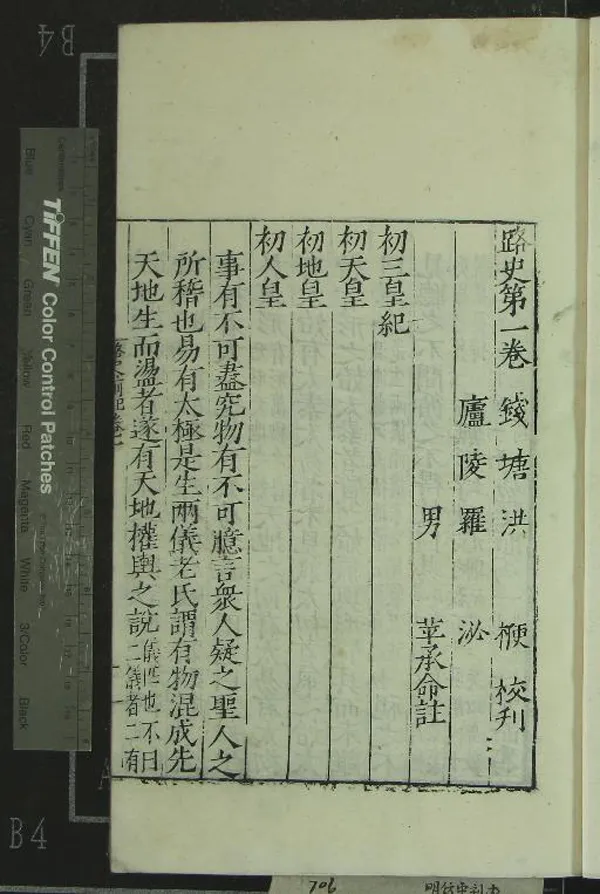 路史第一卷 錢塘洪楩校刋
廬陵羅泌
男苹承命註
初三皇紀
初天皇
初地皇
初人皇
事有不可盡究物有不可臆言衆人疑之聖人之
所稽也易有太極是生兩儀老氏謂有物混成先
天地生而盪者遂有天地權輿之說儀匹也不曰二儀者二有
B4
TIFFEN Color Control Patches
Blue
Cyan
Green
Yellow
Red
Magenta
White
3/Color
Black
B4
706